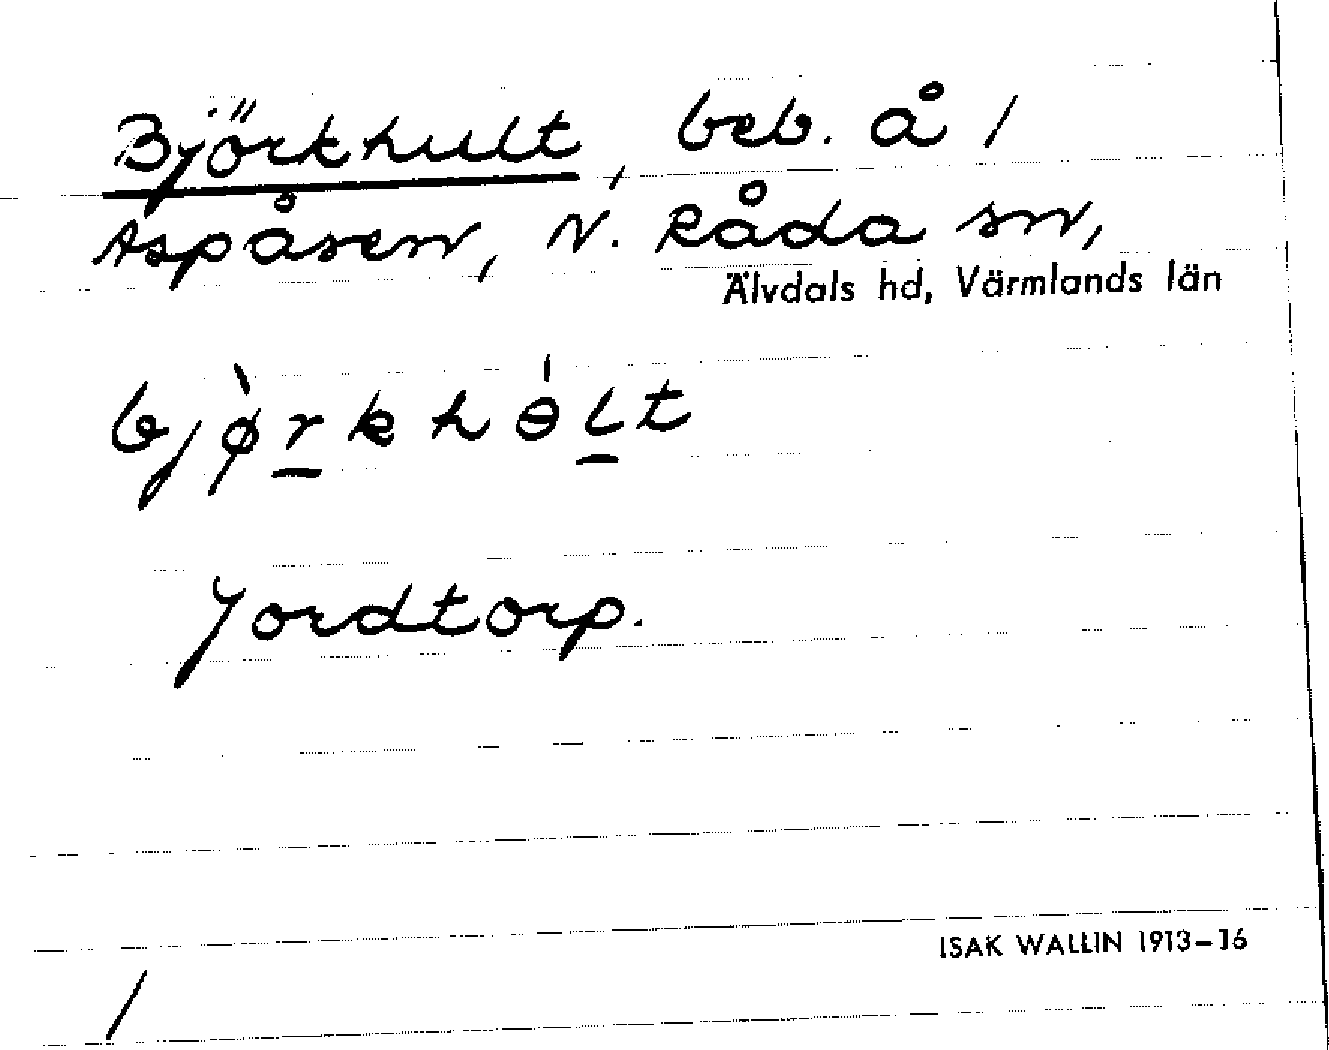 Björkhult, beb. å /
Aspåsen, N. Råda sn,
Älvdals hd, Värmlands län
bjø̀rkhɵ́lt
Jordtorp.
ISAK WALLIN 1913–16
/